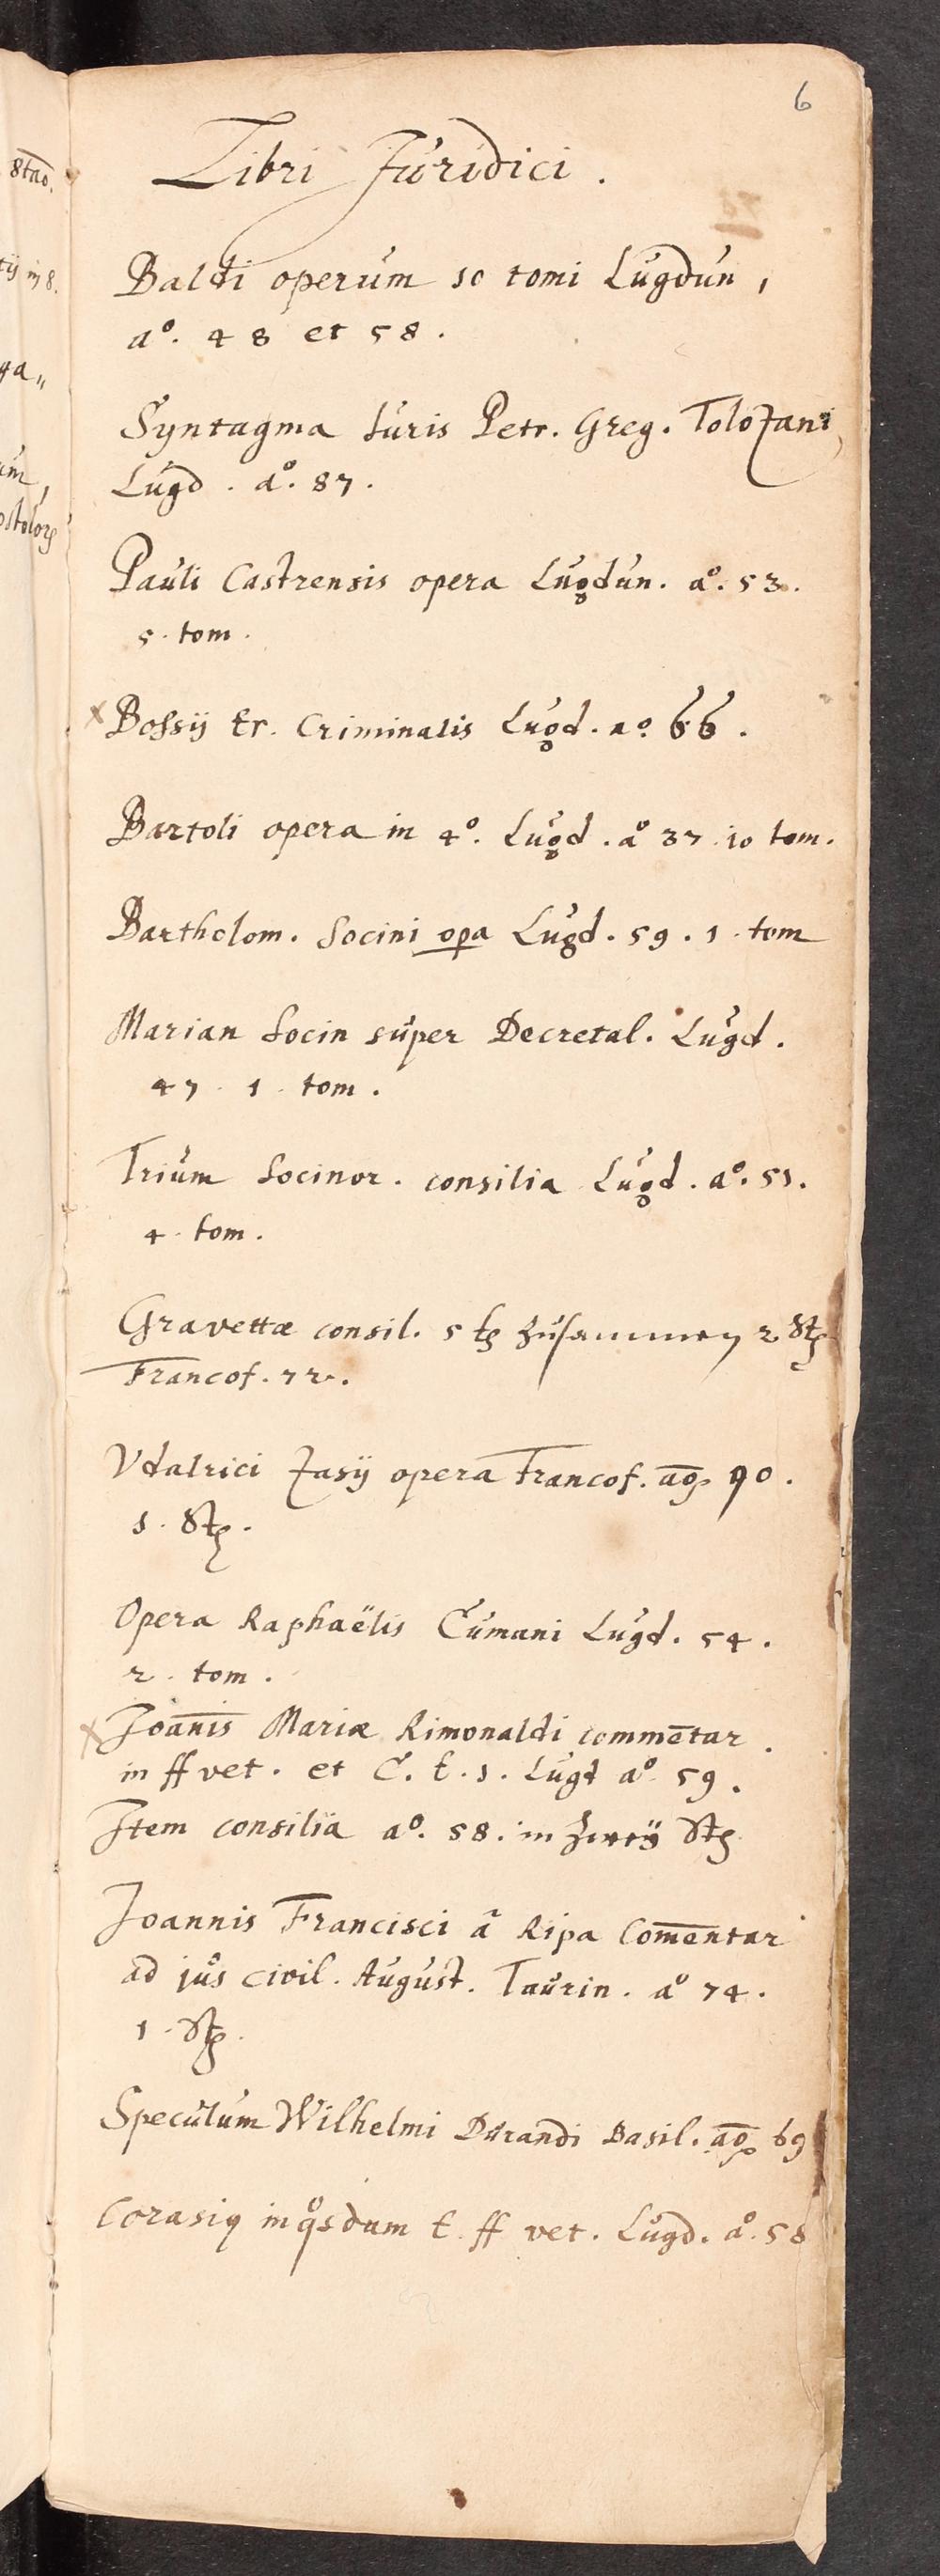 6
Libri Juridici.
Baldi operum 10 tomi Lugdun,
a°. 48 et 58.
Syntagma Iuris Petr. Greg. Tolozani,
Lugd. a°. 87.
Pauli Castrensis opera Lugdun. a°. 53.
5. tom.
x Bossij tr. Criminalis Lugd. a°. 66.
Bartoli opera in 4°. Lugd. a° 37. 10 tom.
Bartholom. Socini opa Lugd. 59. 1. tom
Marian Socin super Decretal. Lugd.
47. 1. tom.
Trium Socinor. consilia Lugd. a°. 51.
4. tom.
Gravettæ consil. 5 zusammen 2
Francof. 72.
Vdalrici Zasij opera Francof. ao 90.
1.
Opera Raphaëlis Cumani Lugd. 54.
2. tom.
x Joanis Mariæ Rimonaldi commetar.
in ff vet. et C. t. 1. Lugd a° 59.
Item consilia a°. 58. in zweÿ
Joannis Francisci à Ripa Comentar
ad jus civil. August. Taurin. a° 74.
1.
Speculum Wilhelmi Durandi Basil. ao 69
Corasij in qsdam t. ff vet. Lugd. a°. 58
8tao.
in 8.
ga„
um,